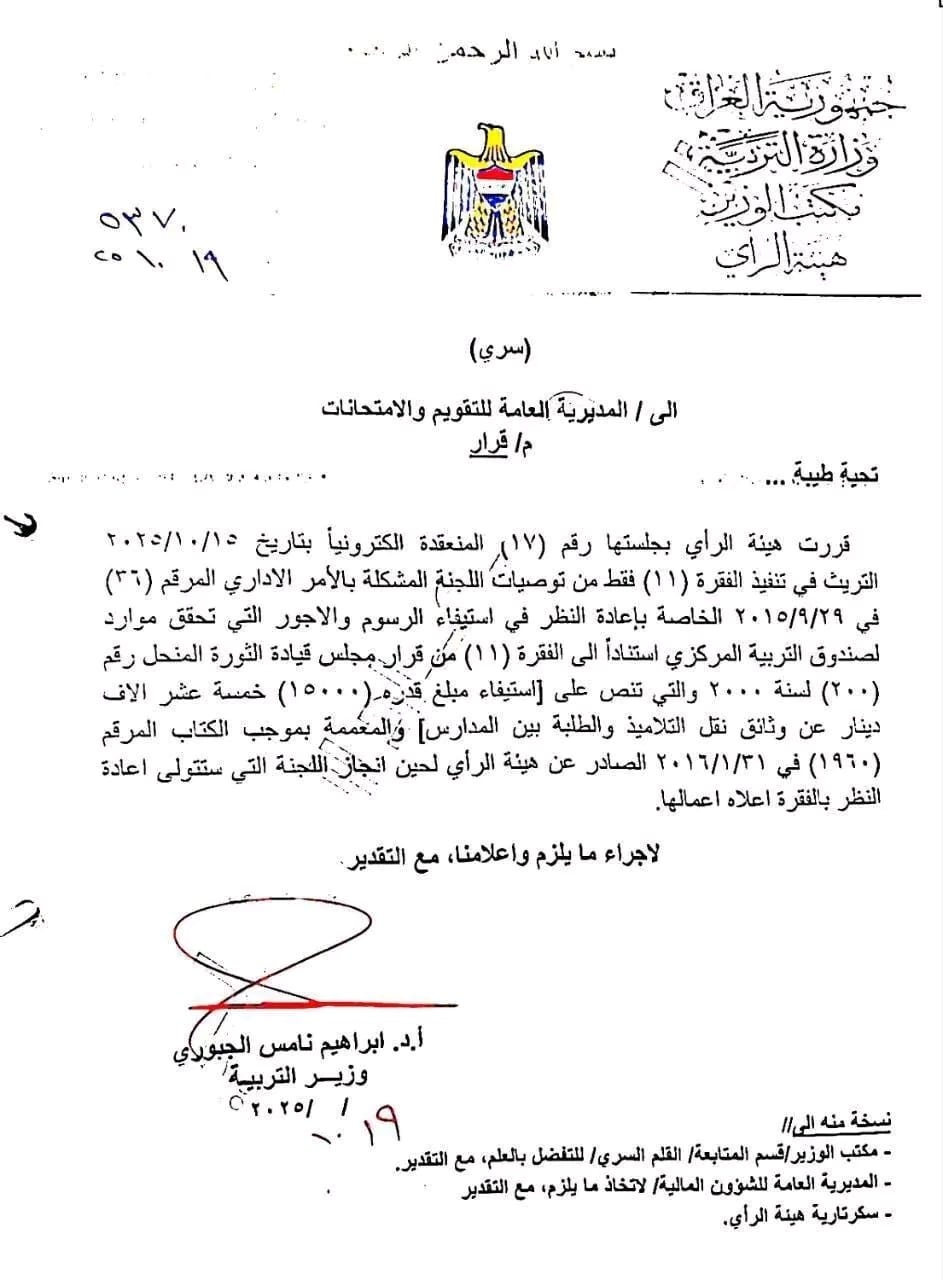 الرحمن
جمهورية العراق
وزارة التربية
مكتب الوزير
هيئة الرأي
٥٣٧٠
٢٥ ١٠ ١٩
(سري)
الى / المديرية العامة للتقويم والامتحانات
م/ قرار
تحية طيبة ...
قررت هيئة الرأي بجلستها رقم (١٧) المنعقدة الكترونياً بتاريخ ٢٠٢٥/١٠/١٥
التريث في تنفيذ الفقرة (١١) فقط من توصيات اللجنة المشكلة بالأمر الاداري المرقم (٣٦)
في ٢٠١٥/٩/٢٩ الخاصة بإعادة النظر في استيفاء الرسوم والاجور التي تحقق موارد
لصندوق التربية المركزي استناداً الى الفقرة (١١) من قرار مجلس قيادة الثورة المنحل رقم
(٢٠٠) لسنة ٢٠٠٠ والتي تنص على [استيفاء مبلغ قدره (١٥٠٠٠) خمسة عشر الاف
دينار عن وثائق نقل التلاميذ والطلبة بين المدارس] والمعممة بموجب الكتاب المرقم
(١٩٦٠) في ٢٠١٦/١/٣١ الصادر عن هيئة الرأي لحين انجاز اللجنة التي ستتولى اعادة
النظر بالفقرة اعلاه اعمالها.
لاجراء ما يلزم واعلامنا، مع التقدير.
أ.د. ابراهيم نامس الجبوري
وزيـــر التربيـة
/ /٢٠٢٥
١٩ ١٠
نسخة منه الى//
- مكتب الوزير/قسم المتابعة/ القلم السري/ للتفضل بالعلم، مع التقدير.
- المديرية العامة للشؤون المالية/ لاتخاذ ما يلزم، مع التقدير
- سكرتارية هيئة الرأي.